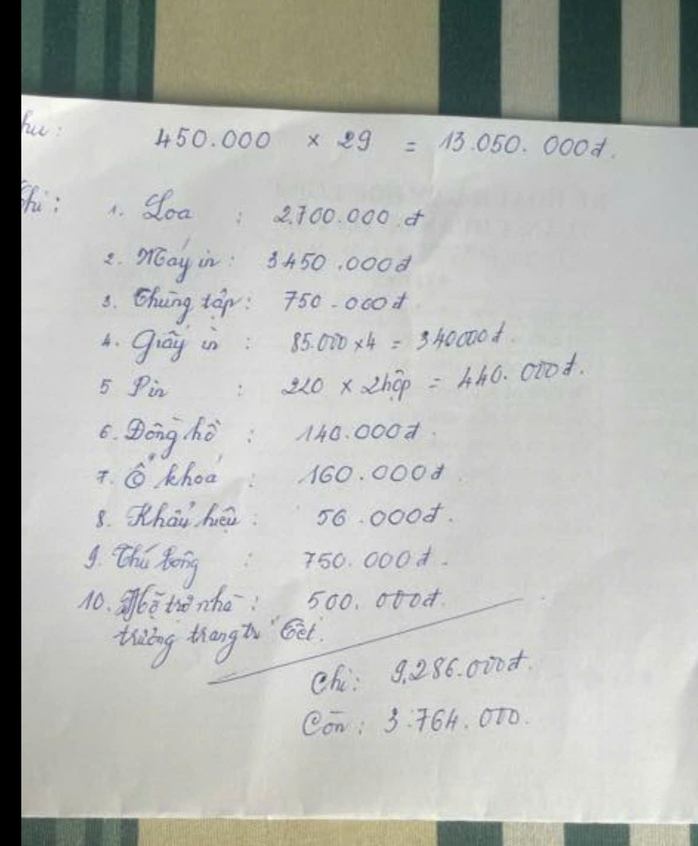 Thu: 450.000 × 29 = 13.050.000đ.
Chi: 1. Loa : 2.700.000.đ
2. Máy in : 3450.000đ
3. Thùng táp : 750.000đ.
4. Giấy in : 85.000 × 4 = 340000đ.
5 Pin : 220 × 2hộp = 440.000đ.
6. Đồng hồ : 140.000đ.
7. Ổ khoá : 160.000đ.
8. Khẩu hiệu : 56.000đ.
9. Thú bông : 750.000đ.
10. Hỗ trợ nhà : 500.000đ.
trường trang trí Tết.
Chi: 9,286.000đ.
Còn : 3.764.000.